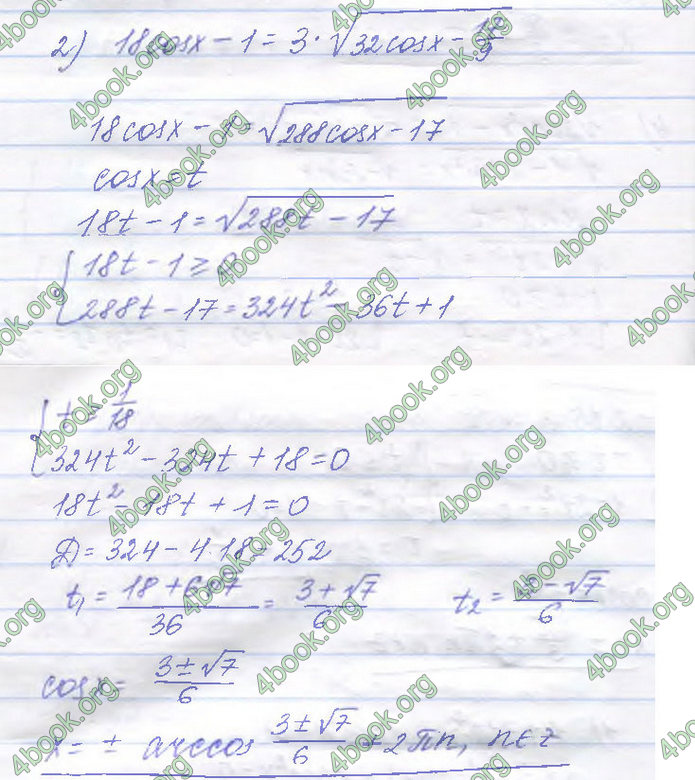 2) 18cosx - 1 = 3·√(32cosx - 17/9)
18cosx - 1 = √(288cosx - 17)
cosx = t
18t - 1 = √(288t - 17)
{ 18t - 1 ≥ 0
288t - 17 = 324t² - 36t + 1
{ t ≥ 1/18
324t² - 324t + 18 = 0
18t² - 18t + 1 = 0
D = 324 - 4·18 = 252
t₁ = (18 + 6√7)/36 = (3 + √7)/6 t₂ = (3 - √7)/6
cosx = (3 ± √7)/6
x = ± arccos (3 ± √7)/6 + 2πn, n∈z
4book.org